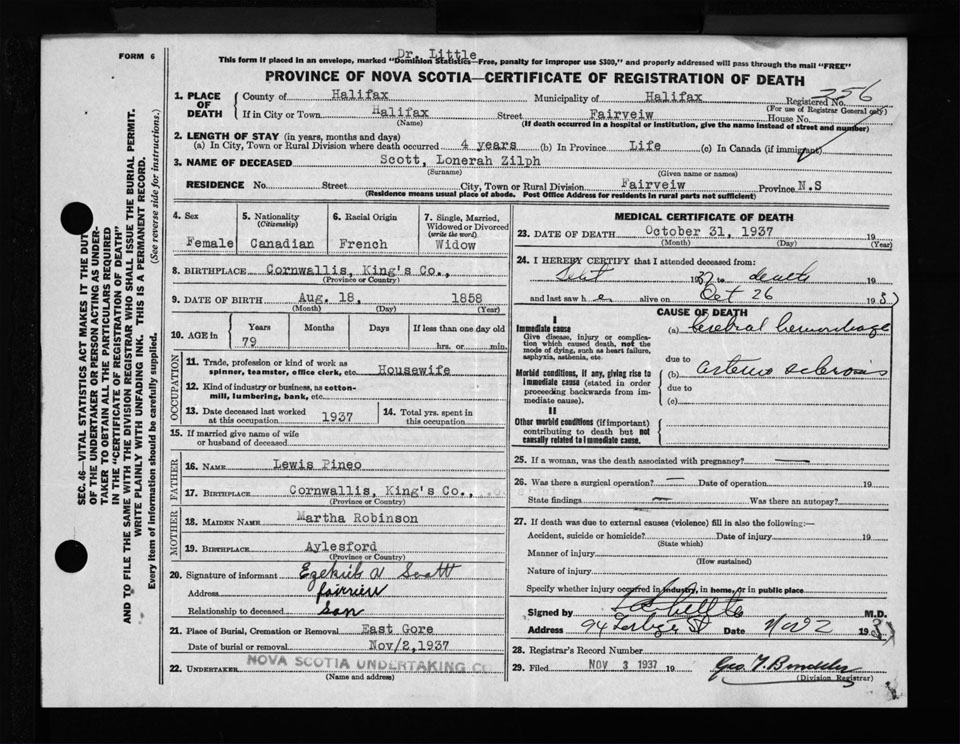 FORM 6
Dr. Little
This form if placed in an envelope, marked "Dominion Statistics—Free, penalty for improper use $300," and properly addressed will pass through the mail "FREE"
PROVINCE OF NOVA SCOTIA—CERTIFICATE OF REGISTRATION OF DEATH
SEC. 46—VITAL STATISTICS ACT MAKES IT THE DUTY
OF THE UNDERTAKER OR PERSON ACTING AS UNDER-
TAKER TO OBTAIN ALL THE PARTICULARS REQUIRED
IN THE "CERTIFICATE OF REGISTRATION OF DEATH"
AND TO FILE THE SAME WITH THE DIVISION REGISTRAR WHO SHALL ISSUE THE BURIAL PERMIT.
WRITE PLAINLY WITH UNFADING INK. THIS IS A PERMANENT RECORD.
Every item of information should be carefully supplied. (See reverse side for instructions.)
1. PLACE OF DEATH
County of Halifax Municipality of Halifax Registered No. 256
(For use of Registrar General only)
If in City or Town Halifax Street Fairveiw House No.
(Name) (If death occurred in a hospital or institution, give the name instead of street and number)
2. LENGTH OF STAY (in years, months and days)
(a) In City, Town or Rural Division where death occurred 4 years (b) In Province Life (c) In Canada (if immigrant)
3. NAME OF DECEASED Scott, Lonerah Zilph
(Surname) (Given name or names)
RESIDENCE No. Street City, Town or Rural Division Fairveiw Province N.S
(Residence means usual place of abode. Post Office Address for residents in rural parts not sufficient)
4. Sex
Female
5. Nationality
(Citizenship)
Canadian
6. Racial Origin
French
7. Single, Married,
Widowed or Divorced
(write the word)
Widow
8. BIRTHPLACE Cornwallis, King's Co.,
(Province or Country)
9. DATE OF BIRTH Aug. 18, 1858
(Month) (Day) (Year)
10. AGE in
Years Months Days If less than one day old
79 hrs. or min.
OCCUPATION
11. Trade, profession or kind of work as
spinner, teamster, office clerk, etc. Housewife
12. Kind of industry or business, as cotton-
mill, lumbering, bank, etc.
13. Date deceased last worked
at this occupation 1937
14. Total yrs. spent in
this occupation
15. If married give name of wife
or husband of deceased
FATHER
16. NAME Lewis Pineo
17. BIRTHPLACE Cornwallis, King's Co.,
(Province or Country)
MOTHER
18. MAIDEN NAME Martha Robinson
19. BIRTHPLACE Aylesford
(Province or Country)
20. Signature of informant Scott
Address Fairview
Relationship to deceased Son
21. Place of Burial, Cremation or Removal East Gore
Date of burial or removal Nov/2,1937
22. UNDERTAKER NOVA SCOTIA UNDERTAKING CO.
(Name and address)
MEDICAL CERTIFICATE OF DEATH
23. DATE OF DEATH October 31, 1937 19
(Month) (Day) (Year)
24. I HEREBY CERTIFY that I attended deceased from:
Sept 1937 to death 19
and last saw h er alive on Oct 26 1937
CAUSE OF DEATH
I
Immediate cause
Give disease, injury or complica-
tion which caused death, not the
mode of dying, such as heart failure,
asphyxia, asthenia, etc.
(a) Cerebral hemorrhage
due to
Morbid conditions, if any, giving rise to
immediate cause (stated in order
proceeding backwards from im-
mediate cause).
(b) arterio sclerosis
due to
(c)
II
Other morbid conditions (if important)
contributing to death but not
causally related to immediate cause.
25. If a woman, was the death associated with pregnancy? —
26. Was there a surgical operation? — Date of operation 19
State findings — Was there an autopsy?
27. If death was due to external causes (violence) fill in also the following:—
Accident, suicide or homicide? Date of injury 19
(State which)
Manner of injury
(How sustained)
Nature of injury
Specify whether injury occurred in industry, in home, or in public place
Signed by M.D.
Address 94 St Date Nov 2 1937
28. Registrar's Record Number
29. Filed NOV 3 1937 19 Geo. T.
(Division Registrar)